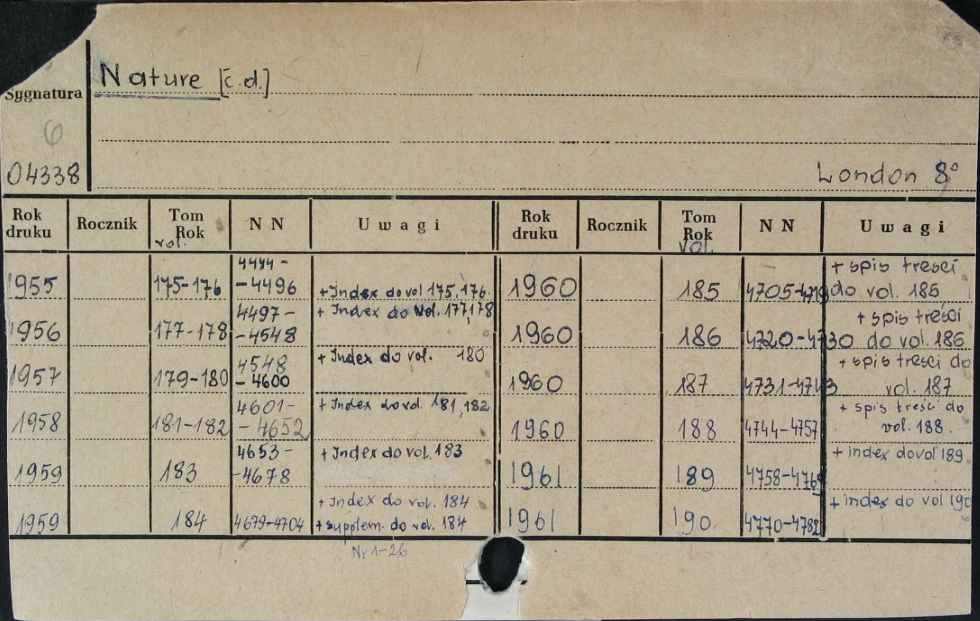 Nature [c.d.]
Sygnatura
6
04338
London 8°
Rok druku Rocznik Tom Rok vol. NN Uwagi Rok druku Rocznik Tom Rok vol. NN Uwagi
1955 175-176 4444--4496 +Index do vol 175, 176
1956 177-178 4497--4548 + Index do vol. 177, 178
1957 179-180 4548-4600 +Index do vol. 180
1958 181-182 4601--4652 + Index do vol. 181, 182
1959 183 4653--4678 + Index do vol. 183
1959 184 4679-4704 + Index do vol. 184
+ supplem. do vol. 184
Nr 1-26
1960 185 4705-4719 + spis treści do vol. 185
1960 186 4720-4730 + spis treści do vol. 186
1960 187 4731-4743 + spis treści do vol. 187
1960 188 4744-4757 + spis treści do vol. 188.
1961 189 4758-4769 + index do vol 189
1961 190. 4770-4782 + index do vol 190